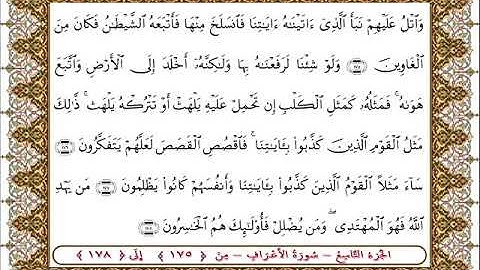 وَٱتۡلُ عَلَيۡهِمۡ نَبَأَ ٱلَّذِيٓ ءَاتَيۡنَٰهُ ءَايَٰتِنَا فَٱنسَلَخَ مِنۡهَا فَأَتۡبَعَهُ ٱلشَّيۡطَٰنُ فَكَانَ مِنَ
ٱلۡغَاوِينَ ۝١٧٥ وَلَوۡ شِئۡنَا لَرَفَعۡنَٰهُ بِهَا وَلَٰكِنَّهُۥٓ أَخۡلَدَ إِلَى ٱلۡأَرۡضِ وَٱتَّبَعَ
هَوَىٰهُۚ فَمَثَلُهُۥ كَمَثَلِ ٱلۡكَلۡبِ إِن تَحۡمِلۡ عَلَيۡهِ يَلۡهَثۡ أَوۡ تَتۡرُكۡهُ يَلۡهَثۚ ذَّٰلِكَ
مَثَلُ ٱلۡقَوۡمِ ٱلَّذِينَ كَذَّبُواْ بِـَٔايَٰتِنَاۚ فَٱقۡصُصِ ٱلۡقَصَصَ لَعَلَّهُمۡ يَتَفَكَّرُونَ ۝١٧٦
سَآءَ مَثَلًا ٱلۡقَوۡمُ ٱلَّذِينَ كَذَّبُواْ بِـَٔايَٰتِنَا وَأَنفُسَهُمۡ كَانُواْ يَظۡلِمُونَ ۝١٧٧ مَن يَهۡدِ
ٱللَّهُ فَهُوَ ٱلۡمُهۡتَدِيۖ وَمَن يُضۡلِلۡ فَأُوْلَٰٓئِكَ هُمُ ٱلۡخَٰسِرُونَ ۝١٧٨
الجُزءُ التَّاسِعُ - سُورَةُ الأَعْرَافِ - مِنْ ﴿١٧٥﴾ إِلَى ﴿١٧٨﴾